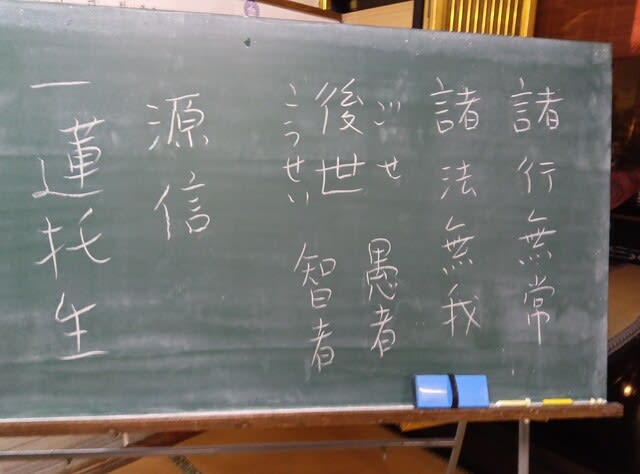 諸行無常
諸法無我
ごせ
後世
こうせい
愚者
智者
源信
一蓮托生